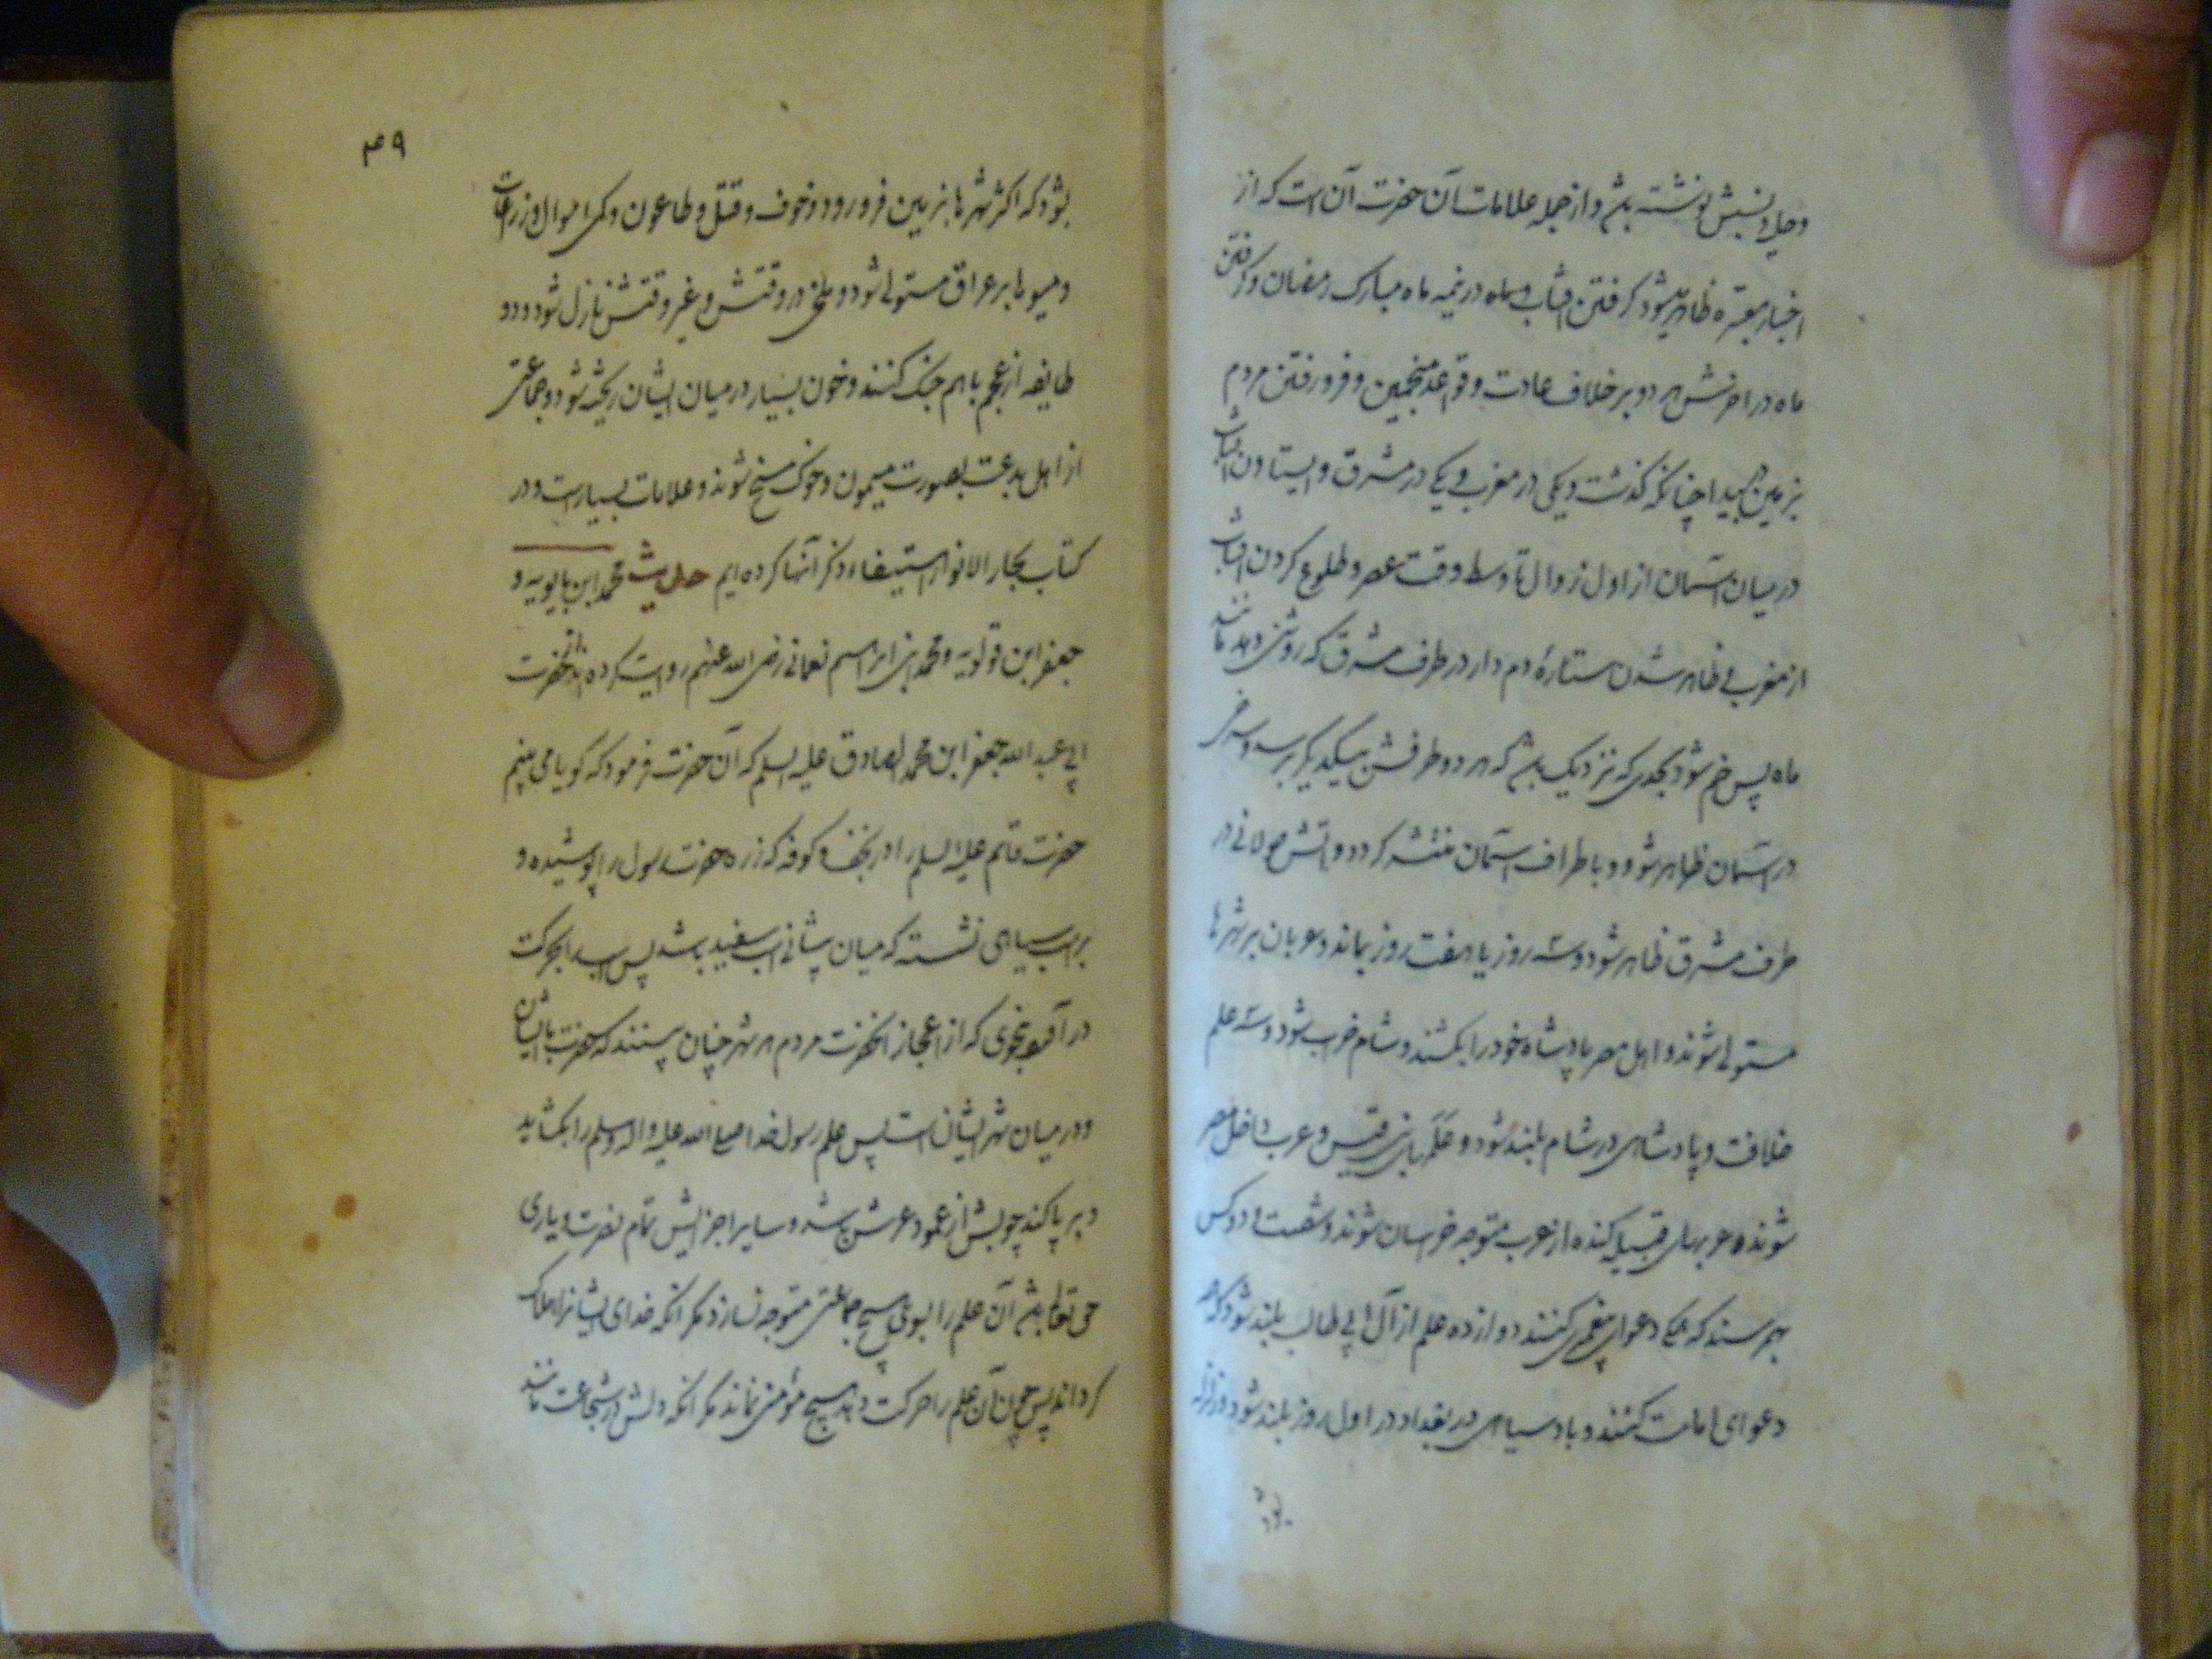 و حلی و نسبش نوشته باشد و از جمله علامات آن حضرت آن است که از
اخبار معتبره ظاهر میشود گرفتن افتاب و ماه در نیمه ماه مبارک رمضان و گرفتن
ماه در اخرش هر دو بر خلاف عادت و قواعد منجمین و فرو رفتن مردم
بزمین بیدا چنانکه گذشت و یکی در مغرب و یکی در مشرق و ایستادن افتاب
در میان آسمان از اول زوال تا وسط وقت عصر و طلوع کردن افتاب
از مغرب و ظاهر شدن ستاره دم دار در طرف مشرق که روشنی دهد مانند
ماه پس خم شود بحدی که نزدیک باشد که هر دو طرفش بیکدیگر برسد و سرخی
در آسمان ظاهر شود و باطراف آسمان منتشر گردد و آتش طولانی در
طرف مشرق ظاهر شود و سه روز یا هفت روز بماند و عربان بر شهرها
مستولی شوند و اهل مصر پادشاه خود را بکشند و شام خراب شود و سه علم
خلافت و پادشاهی در شام بلند شود و علمهای قیس و عرب داخل مصر
شوند و عربهای قبیله کنده از عرب متوجه خراسان شوند و شصت و دو کس
بهم رسند که همگی دعوای پیغمبری کنند دوازده علم از آل ابی طالب بلند شود که همه
دعوای امامت کنند و باد سیاهی در بغداد در اول روز بلند شود و زلزله
بشود که اکثر شهرها بزمین فرو رود و خوف و قتل و طاعون و کمی اموال و زراعات
و میوها بر عراق مستولی شود و ملخ در وقتش و غیر وقتش نازل شود و دو
طایفه از عجم با هم جنک کنند و خون بسیار در میان ایشان ریخته شود و جماعتی
از اهل بدعت بصورت میمون و خوک مسخ شوند و علامات بسیار است و در
کتاب بحار الانوار استیفاء ذکر آنها کرده ایم حدیث محمد ابن بابویه و
جعفر ابن قولویه و محمد بن ابراهیم نعمانی رضی الله عنهم روایت کرده اند از حضرت
ابی عبد الله جعفر ابن محمد الصادق علیه السلم که آن حضرت فرمود که گویا می بینم
حضرت قائم علیه السلم را در نجف کوفه که زره حضرت رسول را پوشیده و
بر اسب سیاهی نشسته که میان پیشانی اسب سفید باشد پس اسب را بحرکت
در آورد بنحوی که از اعجاز انحضرت مردم هر شهر چنان بینند که حضرت با ایشان
و در میان شهر ایشان است پس علم رسول خدا صلی الله علیه و اله و سلم را بکشاید
و بر پا کند چوبش از عمود عرش باشد و سایر اجزایش تمام نصرت و یاری
حق تعالی باشد آن علم را بسوی هیچ جماعتی متوجه نسازد مکر انکه خدای ایشانرا هلاک
کرداند پس چون آن علم را حرکت دهد هیچ مؤمنی نماند مکر انکه دلش در شجاعت مانند
۴۹